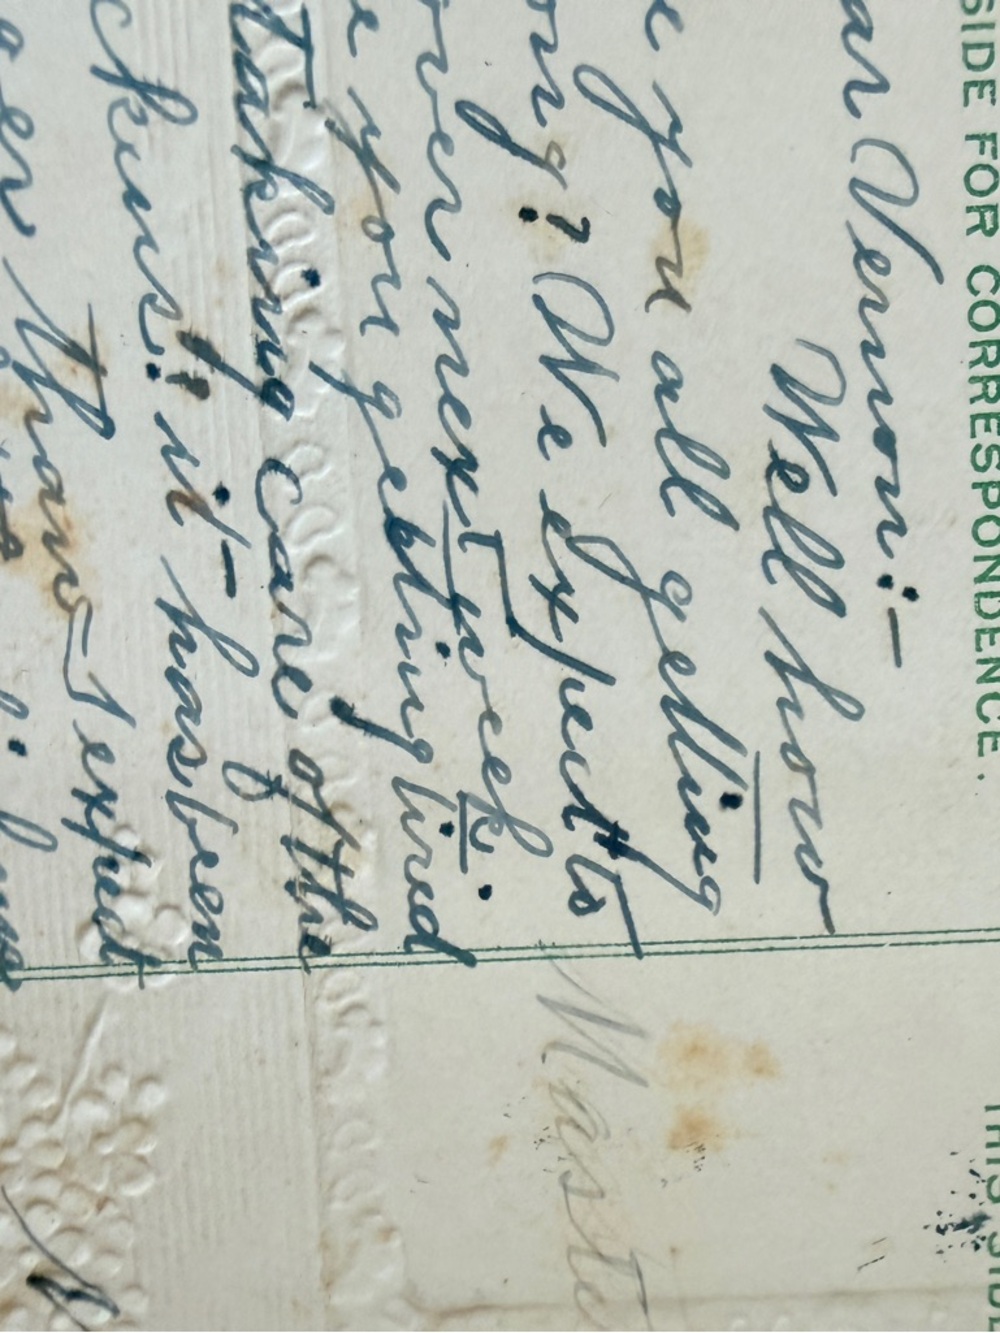 SIDE FOR CORRESPONDENCE.
THIS SIDE
ar Vernon:-
Well how
e you all getting
ong? We expects to
over next week.
e you getting tired
taking care of the
ckens? it has been
er than I expect
Maste